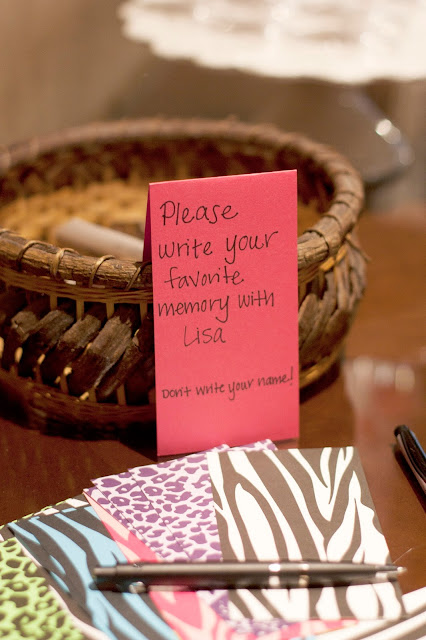 Please
write your
favorite
memory with
Lisa
Don't write your name!